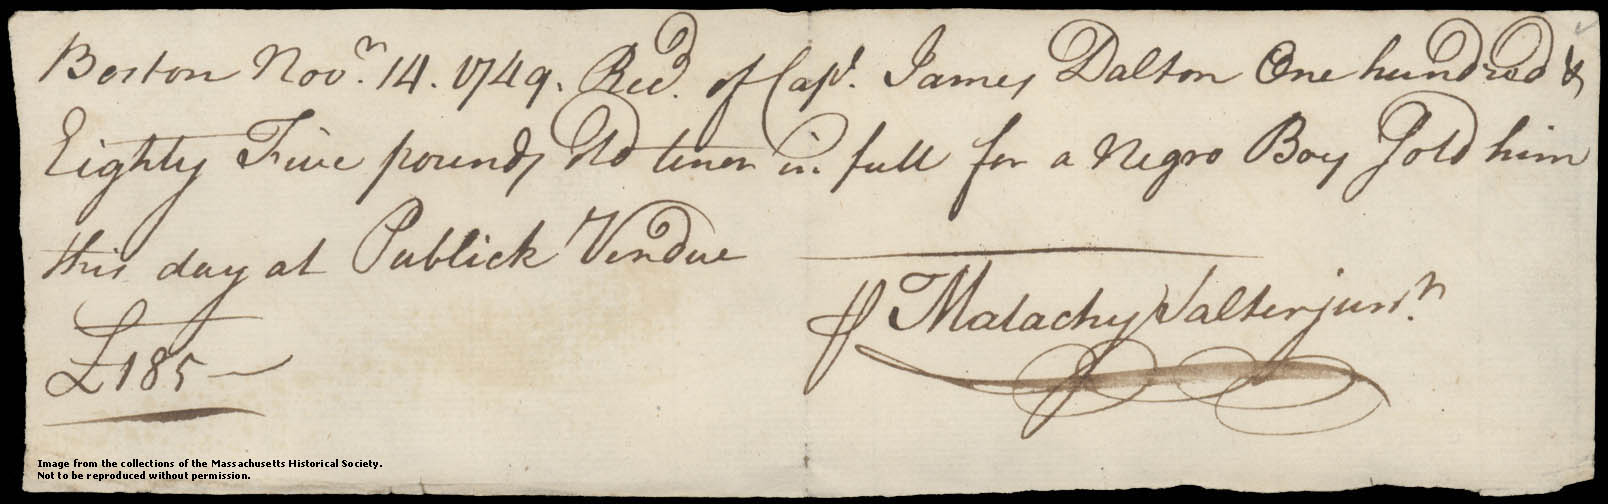 Boston Novr. 14. 1749. Recd. of Capt. James Dalton One hundred &
Eighty Five pounds Old tenor in full for a Negro Boy Sold him
this day at Publick Vendue
£185
Malachy Salter junr.
Image from the collections of the Massachusetts Historical Society.
Not to be reproduced without permission.